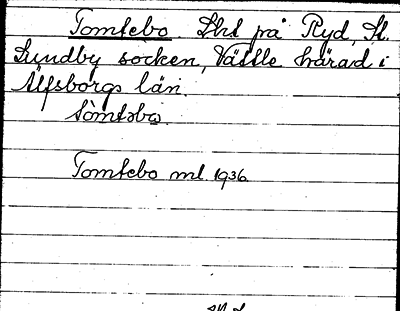 Tomtebo. Lht på Ryd, St.
Lundby socken, Vättle härad i
Älfsborgs län.
tómtəbo.
Tomtebo ml. 1936